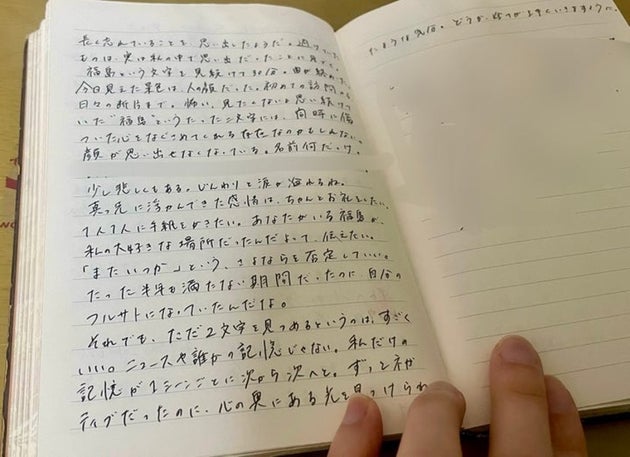 長く忘れていることを思い出したようだ。過ぎていた
ものは、実は私の中で思い出だったことに
福島という文字を見続けて30分。曲が終わって
今日見えた景色は、人の顔だった。初めての訪問から
日々の断片まで。怖い、見たくないと思い続けて
いた"福島"というたった二文字には、同時に傷
ついた心をなぐさめてくれる存在なのかもしれない。
顔が思い出せなくなっている。名前何だっけ。
・・・
少し悲しくもある。じんわりと涙が溢れるね。
真っ先に浮かんできた感情は、ちゃんとお礼をしたい。
1人1人に手紙をかきたい。あなたがいる福島が、
私の大好きな場所だったんだよって、伝えたい。
「またいつか」という、さよならを否定していい。
たった半年も満たない期間だったのに、自分の
フルサトになっていたんだな。
それでも、ただ2文字を見つめるというのは、すごく
いい。ニュースや誰かの記憶じゃない。私だけの
記憶が1シーンごとに次から次へと。ずっとネガ
ティブだったのに、心の奥にある光を見つけられ
たような気分。どうか、皆がよきにいきますように。